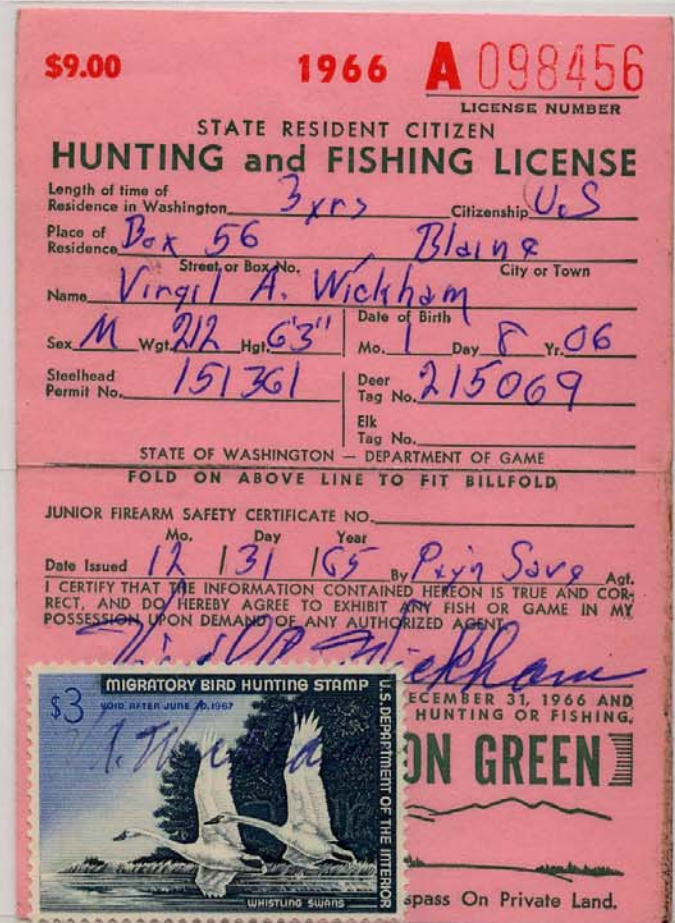 $9.00 1966 A 098456
LICENSE NUMBER
STATE RESIDENT CITIZEN
HUNTING and FISHING LICENSE
Length of time of
Residence in Washington 3 yrs Citizenship U.S
Place of
Residence Box 56 Blaine
Street or Box No. City or Town
Name Virgil A. Wickham
Date of Birth
Sex M Wgt. 212 Hgt. 6'3" Mo. 1 Day 8 Yr. 06
Steelhead
Permit No. 151361
Deer
Tag No. 215069
Elk
Tag No.
STATE OF WASHINGTON — DEPARTMENT OF GAME
FOLD ON ABOVE LINE TO FIT BILLFOLD
JUNIOR FIREARM SAFETY CERTIFICATE NO.
Mo. Day Year
Date Issued 12 / 31 / 65 By Pay'n Save Agt.
I CERTIFY THAT THE INFORMATION CONTAINED HEREON IS TRUE AND COR-
RECT, AND DO HEREBY AGREE TO EXHIBIT ANY FISH OR GAME IN MY
POSSESSION UPON DEMAND OF ANY AUTHORIZED AGENT.
Virgil A. Wickham
ECEMBER 31, 1966 AND
HUNTING OR FISHING.
ON GREEN
spass On Private Land.
MIGRATORY BIRD HUNTING STAMP
$3 VOID AFTER JUNE 30, 1967
V.A. Wickham
U.S. DEPARTMENT OF THE INTERIOR
WHISTLING SWANS